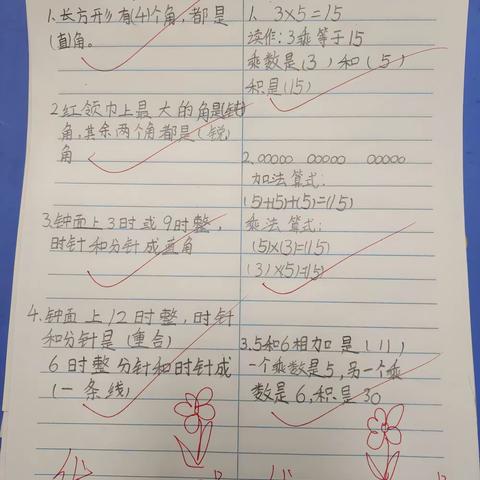 1.长方形有(4)个角,都是
(直)角。
2.红领巾上最大的角是(钝)
角,其余两个角都是(锐)
角
3.钟面上3时或9时整,
时针和分针成直角
4.钟面上12时整,时针
和分针是(重合)
6时整分针和时针成
(一条线)
1. 3×5=15
读作:3乘等于15
乘数是(3)和(5)
积是(15)
2.ooooo ooooo ooooo
加法算式:
(5)+(5)+(5)=(15)
乘法算式:
(5)×(3)=(15)
(3)×(5)=(15)
3.5和6相加是(11)
一个乘数是5,另一个乘
数是6,积是30